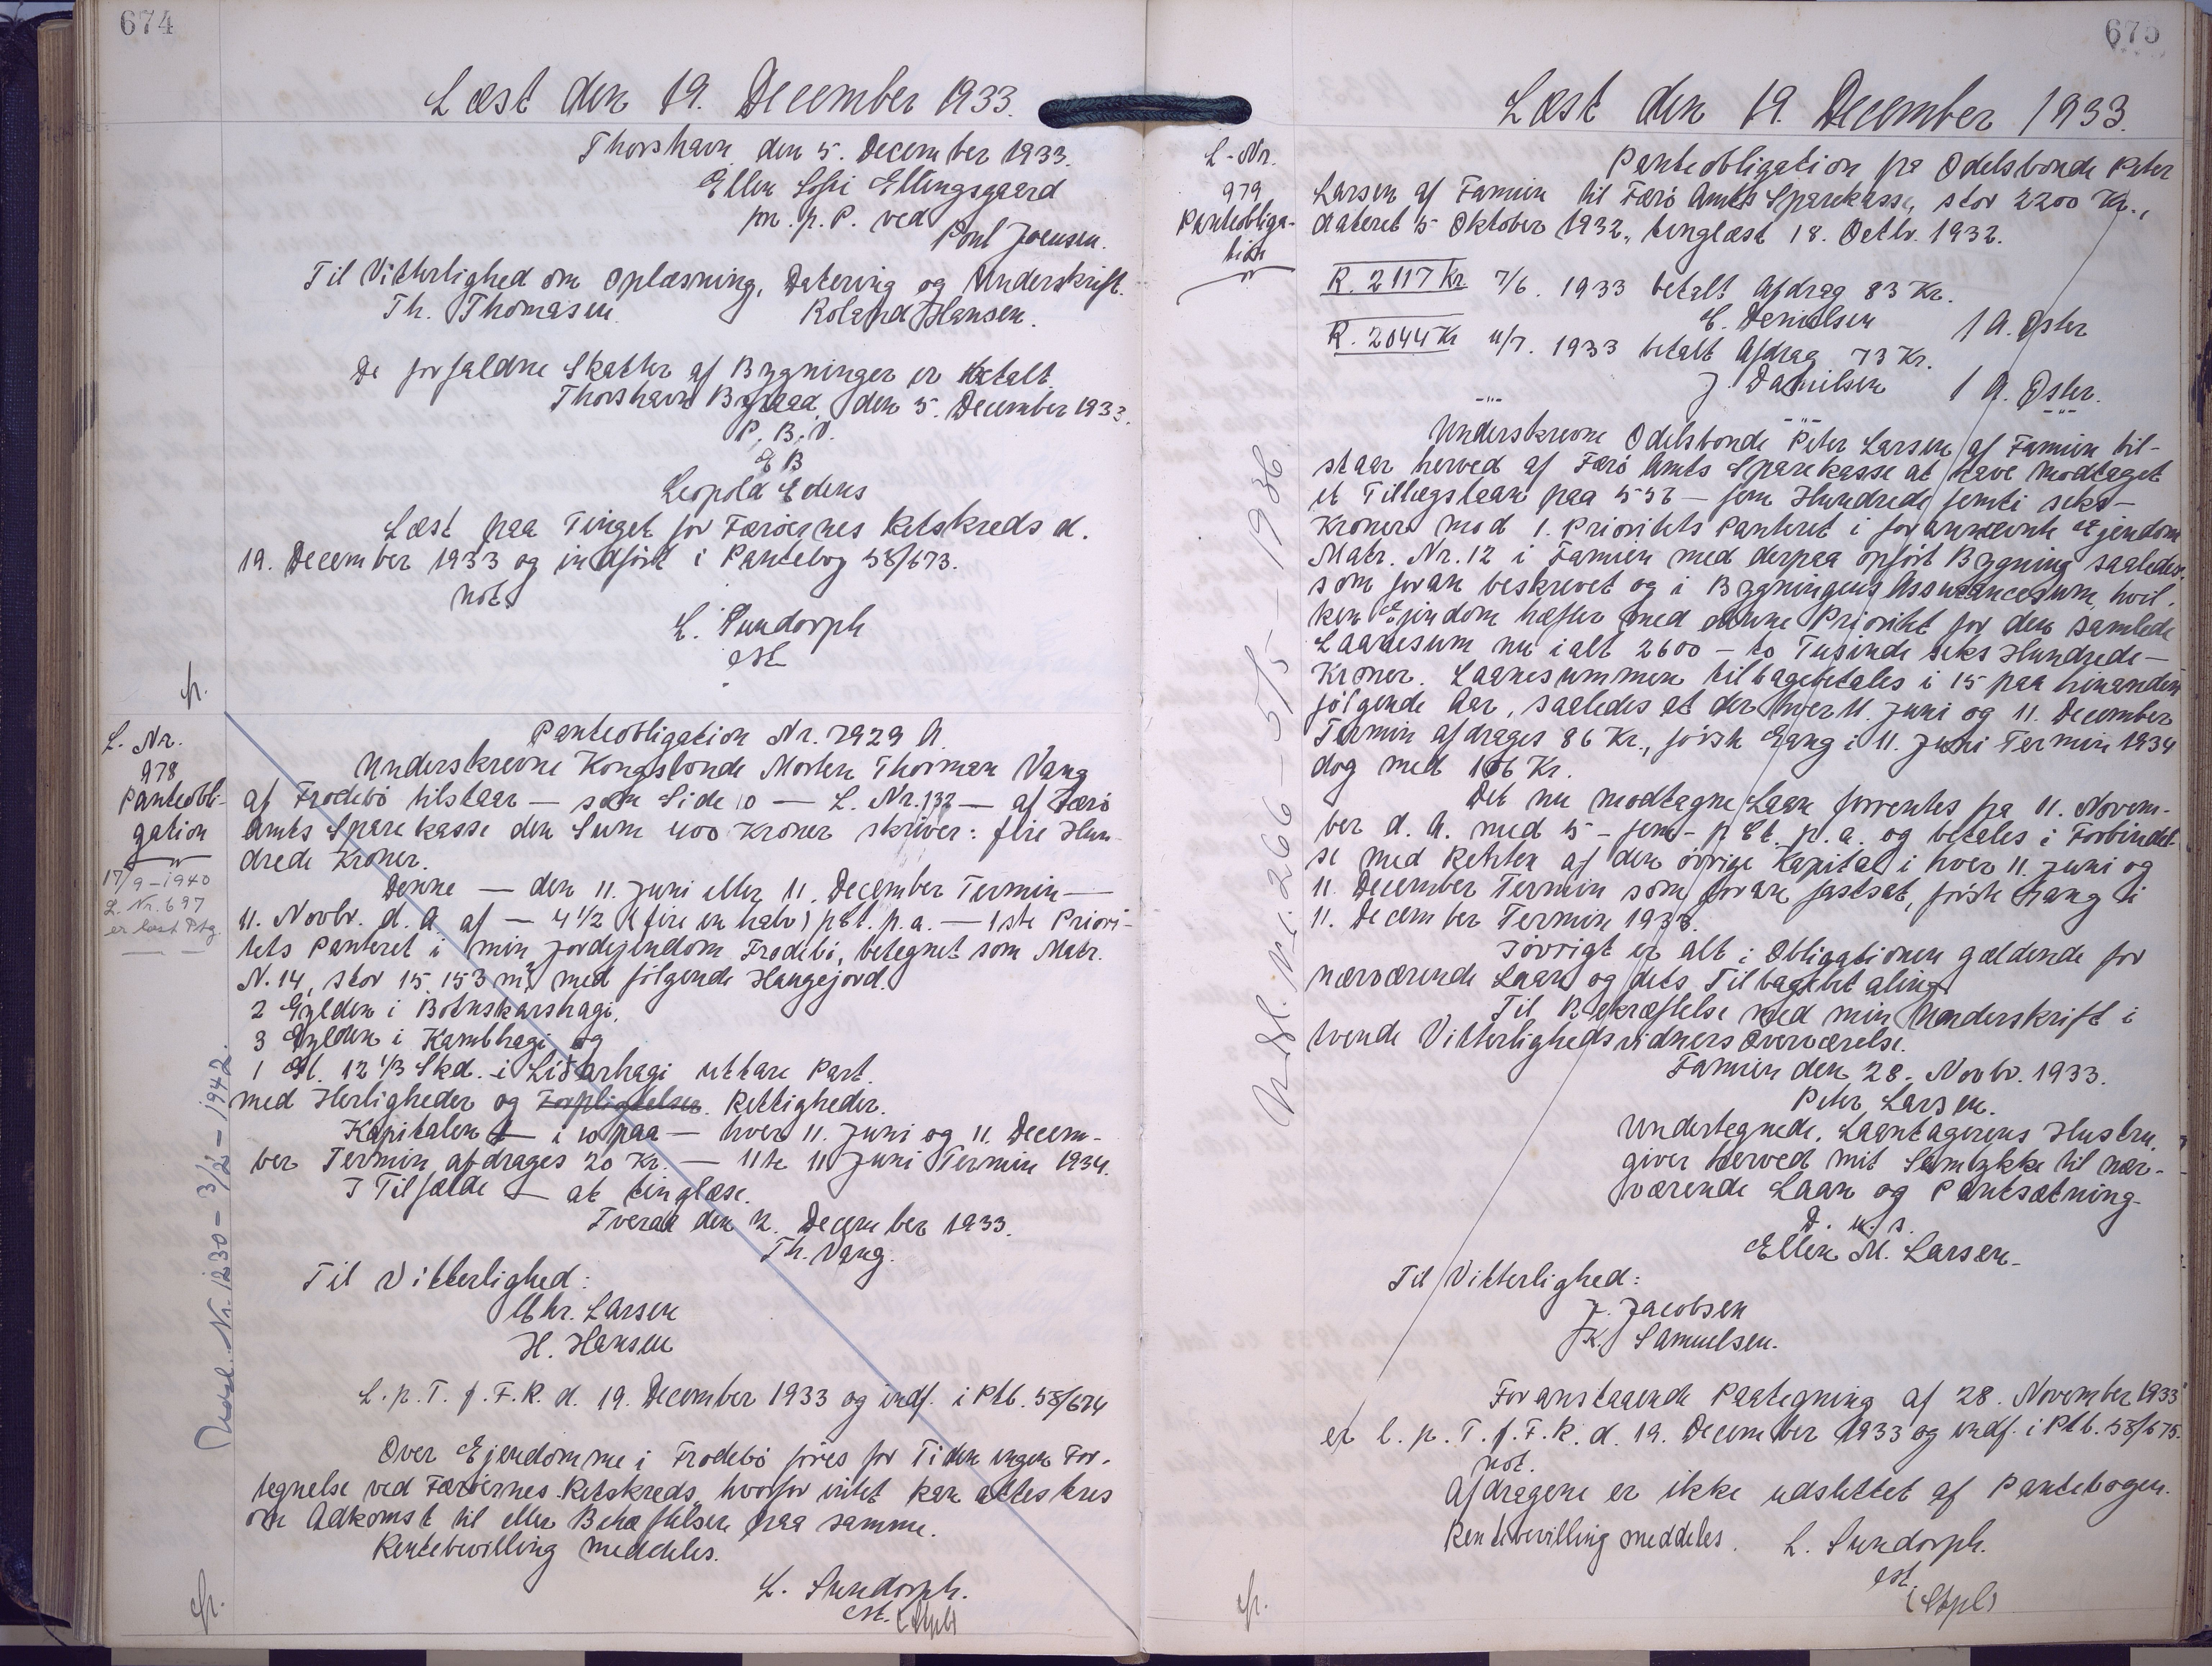 674
Læst den 19. December 1933.
Thorshavn, den 5. December 1933.
Ellen Sofie Ellingsgaard
pr. p. P. ved
Poul Joensen.
Til Vitterlighed om Oplæsning, Datering og Underskrift.
Th. Thomasen. Roland Hansen.
De forfaldne Skatter af Bygninger er betalt.
Thorshavn Byraad, den 5. December 1933.
P. B. V.
E B
Leopold Edens
Læst paa Tinget for Færøernes Retskreds d.
19. December 1933 og indført i Pantebog 58/673.
not.
L. Sundorph
cst
fr.
L. Nr.
978
Panteobli-
gation
17/9-1940
L. Nr. 697
er læst Ptg.
Panteobligation Nr. 7929 A.
Underskrevne Kongsbonde Morten Thorman Vang
af Frodebø tilstaar — som Side 10 — L. Nr. 132 — af Færø
Amts Sparekasse den Sum 400 Kroner skriver: fire Hun-
drede Kroner.
Denne — den 11. Juni eller 11. December Termin —
11. Novbr. d. A. af — 4 1/2 (fire en halv) pCt. p. a. — 1ste Priori-
tets Panteret i min Jordejendom Frodebø, betegnet som Matr.
N. 14, stor 15.153 m² med følgende Haugejord.
2 Gylden i Botnskarshagi,
3 Gylden i Kambhagi og
1 Gl. 12 1/3 Skd. i Liðarhagi uttare Part.
med Herligheder og Forpligtelser. Rettigheder.
Kapitalen — i 10 paa — hver 11. Juni og 11. Decem-
ber Termin afdrages 20 Kr. — 11te 11 Juni Termin 1934.
I Tilfælde — at tinglæse.
Tveraa den 2. December 1933.
Th. Vang.
Til Vitterlighed:
Chr. Larsen
H. Hansen
L. p. T. f. F. R. d. 19. December 1933 og indf. i Ptb. 58/674
Over Ejendomme i Frodebø føres for Tiden ingen For-
tegnelse ved Færøernes Retskreds, hvorfor intet kan attesteres
om Adkomst til eller Behæftelser paa samme.
Rentebevilling meddeles.
L. Sundorph.
cst.
fr.
Udsl. Nr. 1230 - 3/2 - 1942.
675
Læst den 19. December 1933.
L-Nr.
979
Panteobliga-
tion
Panteobligation fra Odelsbonde Peter
Larsen af Famien til Færø Amts Sparekasse, stor 2200 Kr.,
dateret 5 Oktober 1932, tinglæst 18. Octbr. 1932.
R. 2117 Kr. 7/6. 1933 betalt Afdrag 83 Kr.
E. Danielsen / A. Øster
R. 2044 Kr 11/7. 1933 betalt Afdrag 73 Kr.
J. Danielsen / A. Øster.
Underskrevne Odelsbonde Peter Larsen af Famien til-
staar herved af Færø Amts Sparekasse at have modtaget
et Tillægslaan paa 556 — fem Hundrede femti seks —
Kroner mod 1. Prioritets Panteret i forannævnte Ejendom
Matr. Nr. 12 i Famien med derpaa opført Bygning saaledes
som foran beskrevet og i Bygningens Assurancesum, hvil-
ken Ejendom hæfter med denne Prioritet for den samlede
Laanesum nu ialt 2600 — to Tusinde seks Hundrede —
Kroner. Laanesummen tilbagebetales i 15 paa hinanden
følgende Aar, saaledes at der hver 11. Juni og 11. December
Termin afdrages 86 Kr., første Gang i 11. Juni Termin 1934
dog med 106 Kr.
Det nu modtagne Laan forrentes fra 11. Novem-
ber d. A. med 5 - fem - p Ct. p. a. og betales i Forbindel-
se med Renten af den øvrige Kapital i hver 11. Juni og
11. December Termin som foran fastsat, første Gang i
11. December Termin 1933.
Iøvrigt er alt i Obligationen gældende for
nærværende Laan og dets Tilbagebetaling.
Til Bekræftelse med min Underskrift i
tvende Vitterlighedsvidners Overværelse.
Famien den 28. Novbr. 1933.
Peter Larsen.
Undertegnede, Laantagerens Hustru,
giver herved mit Samtykke til nær-
værende Laan og Pantsætning.
D. u. s.
Ellen M. Larsen.
Til Vitterlighed:
J. Jacobsen
K. Samuelsen.
Foranstaaende Paategning af 28. November 1933
er l. p. T. f. F. R. d. 19. December 1933 og indf. i Ptb. 58/675.
not.
Afdragene er ikke udslettet af Pantebogen.
Rentebevilling meddeles. L. Sundorph.
cst.
fr.
Udsl. Nr. 266 - 5/5 - 1936.